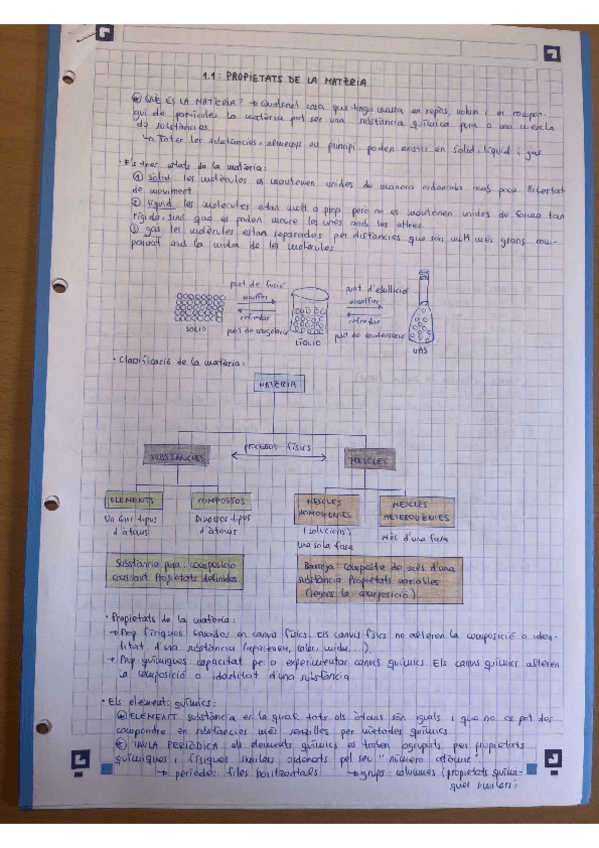 1.1: PROPIETATS DE LA MATÈRIA
QUÈ ÉS LA MATÈRIA? → Qualsevol cosa que tingui massa en repòs, volum i es compon-
gui de partícules. La matèria pot ser una substància química pura o una mescla
de substàncies.
↳ Totes les substàncies, almenys en principi poden existir en sòlid, líquid i gas
· Els tres estats de la matèria:
① sòlid: les molècules es mantenen unides de manera ordenada amb poca llibertat
de moviment
② líquid: les molècules estan molt a prop però no es mantenen unides de forma tan
rígida, sinó que es poden moure les unes amb les altres.
③ gas: les molècules estan separades per distàncies que són molt més grans com-
parant amb la mida de les molècules
punt de fusió
escalfar
refredar
punt de congelació
punt d'ebullició
escalfar
refredar
punt de condensació
SÒLID
LÍQUID
GAS
· Classificació de la matèria:
MATÈRIA
SUBSTÀNCIES
processos físics
MESCLES
ELEMENTS
COMPOSTOS
MESCLES HOMOGÈNIES
MESCLES HETEROGÈNIES
Un únic tipus d'àtoms
Diversos tipus d'àtoms
(solucions)
Una sola fase
Més d'una fase
Substància pura: composició
constant Propietats definides.
Barreja: composta de més d'una
substància Propietats variables
(segons la composició)
· Propietats de la matèria:
→ Prop. físiques: basades en canvis físics. Els canvis físics no alteren la composició o iden-
titat d'una substància (aparença, color, mida...).
→ Prop. químiques: capacitat per a experimentar canvis químics. Els canvis químics alteren
la composició o identitat d'una substància.
· Els elements químics:
ELEMENT: substància en la qual tots els àtoms són iguals i que no es pot des-
compondre en substàncies més senzilles per mètodes químics
TAULA PERIÒDICA: els elements químics es troben agrupats per propietats
químiques i físiques similars, ordenats pel seu "número atòmic"
→ períodes: files horitzontals → grups: columnes (propietats quími-
ques similars)